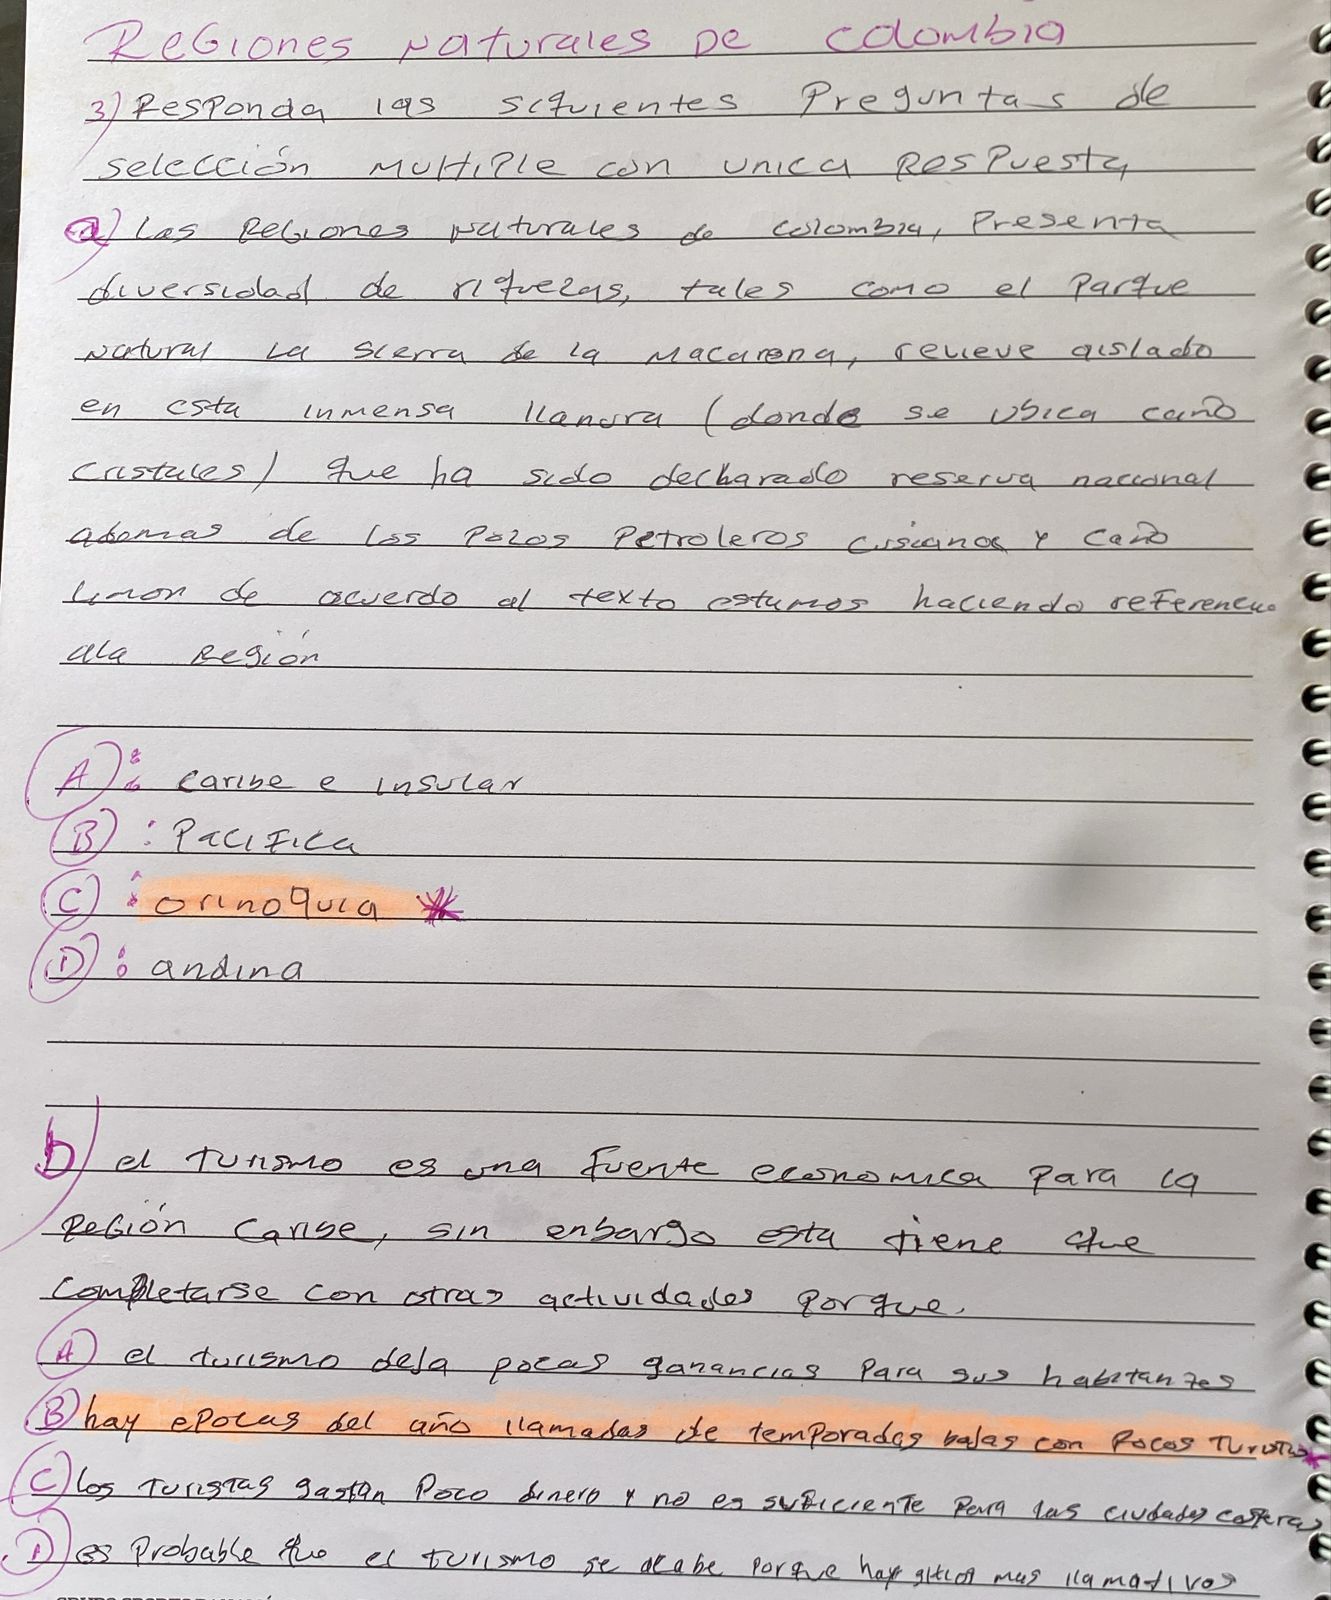 Regiones Naturales De Colombia
3) Responda las siquientes Preguntas de
selección Multiple con unica Respuesta
a) Las Regiones Naturales de Colombia, Presenta
diversidad de riquezas, tales como el Parque
Natural La Sierra de la Macarena, relieve aislado
en esta inmensa llanura (donde se ubica caño
cristales) que ha sido decharado reserva nacional
ademas de los Pozos Petroleros Cusiana y Caño
Limon de acuerdo al texto estamos haciendo referencia
ala Región
A): caribe e insular
B): Pacifica
C): orinoquia *
D): andina
b) el turismo es una fuente economica para la
Región Caribe, sin enbargo esta tiene que
completarse con otras actividades porque.
A) el turismo deja pocas ganancias para sus habitantes
B) hay epocas del año llamadas de temporadas bajas con Pocos Turistas *
C) los Turistas gastan Poco dinero y no es suficiente Para las ciudades costeras
D) es Probable que el turismo se acabe porque hay sitios mas llamativos